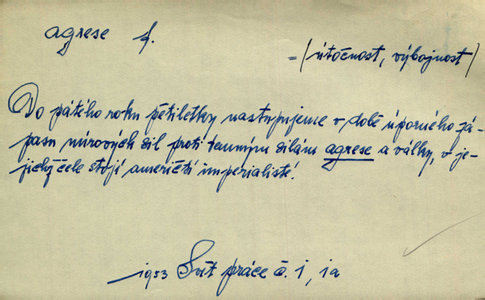 agrese f.
= (útočnost, výbojnost)
Do pátého roku pětiletky nastupujeme v době úporného zá-
pasu mírových sil proti temným silám agrese a války, v je-
jichž čele stojí američtí imperialisté.
1953 Svět práce č. 1, 1a